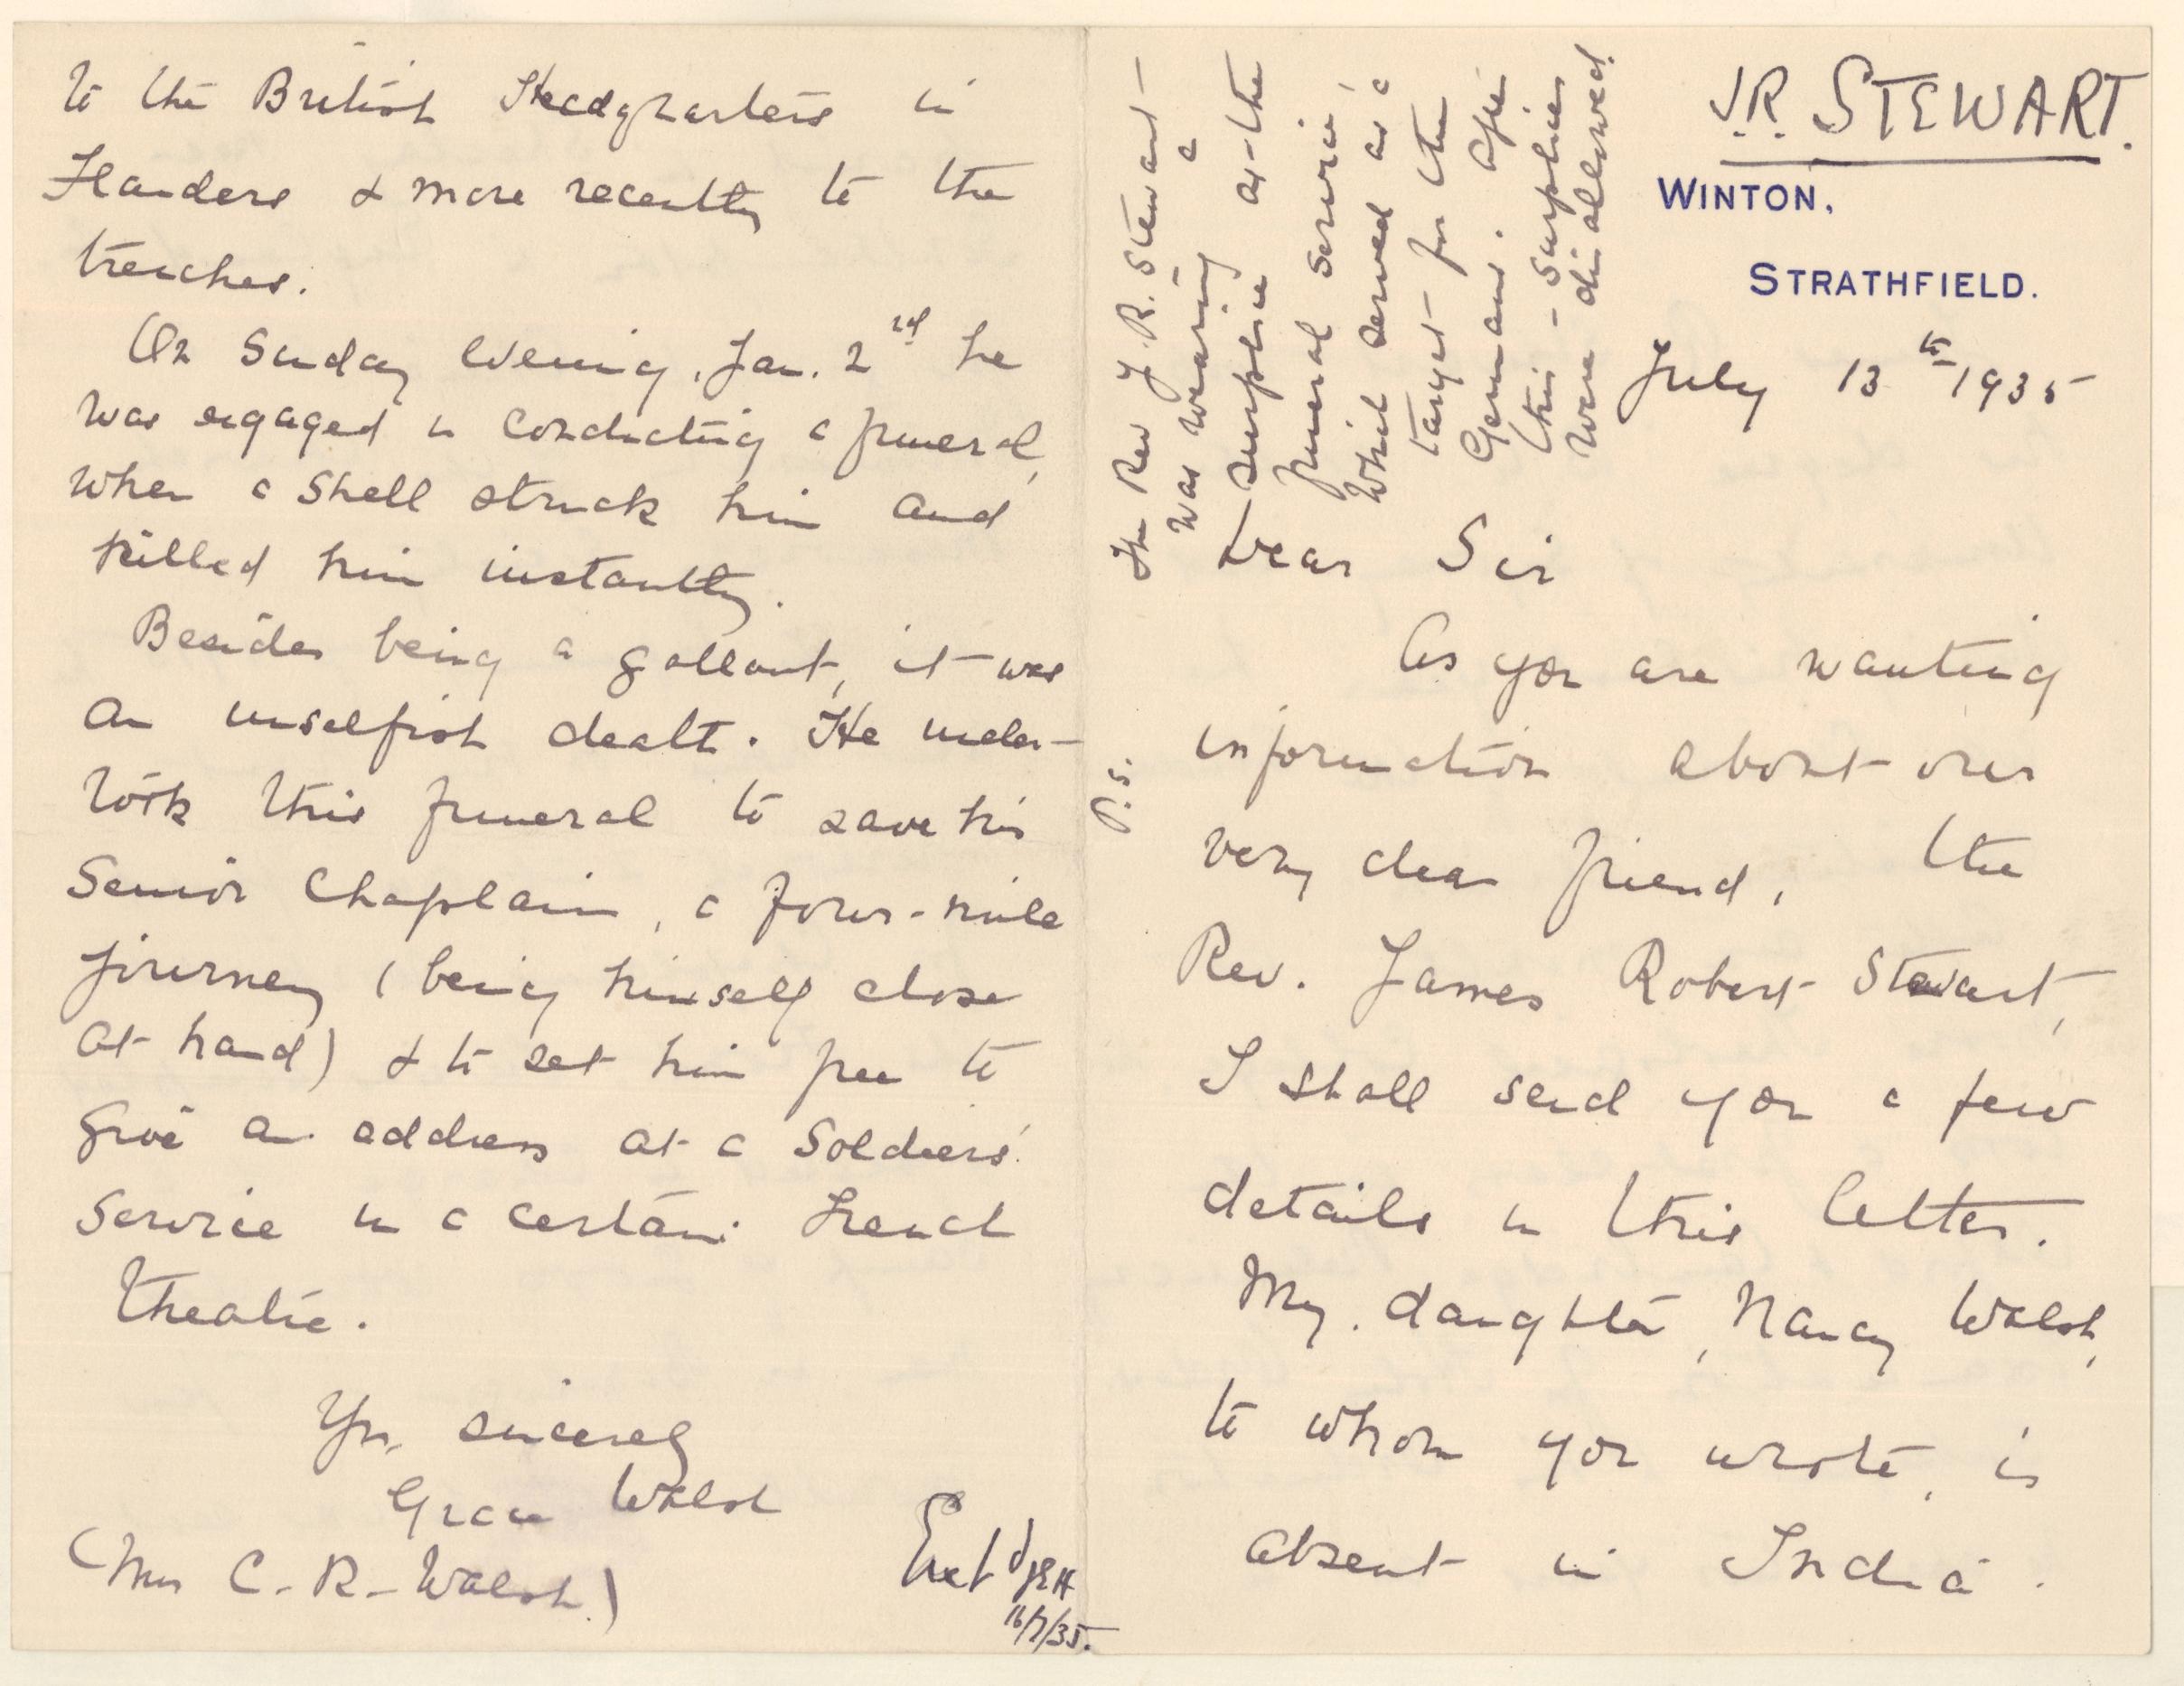 J.R. STEWART.
WINTON,
STRATHFIELD.
July 13th 1935
Dear Sir
As you are wanting
information about our
very dear friend, the
Rev. James Robert Stewart,
I shall send you a few
details in this letter.
My daughter, Nancy Walsh,
to whom you wrote, is
absent in India.
P.S.
The Rev J. R. Stewart
was wearing a
surplice at the
funeral service,
which served as a
target for the
Germans. After
this - surplices
were disallowed.
to the British Headquarters in
Flanders & more recently to the
trenches.
On Sunday evening, Jan. 2nd he
was engaged in conducting a funeral,
when a shell struck him and
killed him instantly.
Besides being a gallant, it was
an unselfish death. He under-
took this funeral to save his
Senior Chaplain, a four-mile
journey (being himself close
at hand) & to set him free to
give an address at a Soldiers'
Service in a certain French
theatre.
Yrs. sincerely
Grace Walsh
(Mrs C. R. Walsh)
Extd JEH
16/7/35.